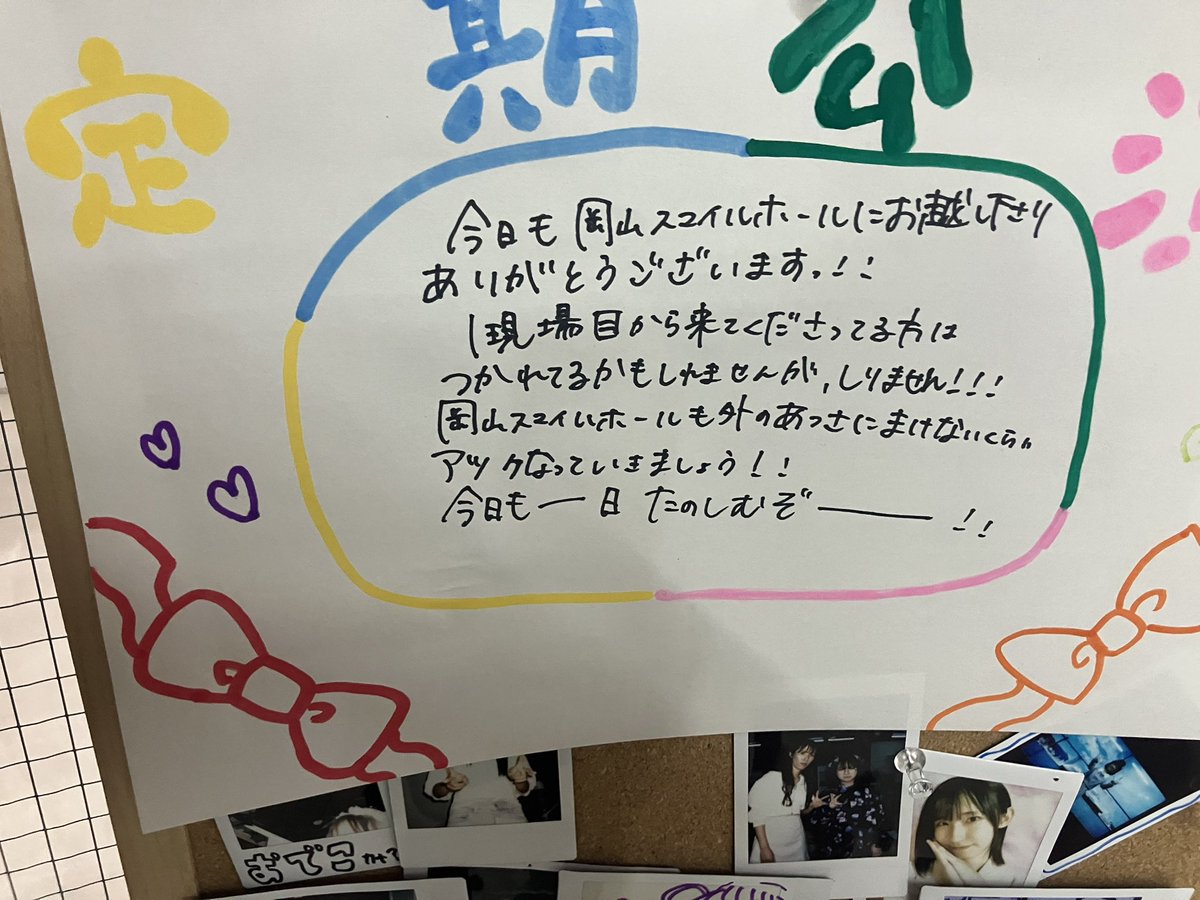 定期公演
今日も岡山スマイルホールにお越し下さり
ありがとうございますっ!!
1現場目から来てくださってる方は
つかれてるかもしれませんが、しりません!!!
岡山スマイルホールも外のあつさにまけないくらい
アツクなっていきましょう!!
今日も一日たのしむぞー!!
おでこかな?